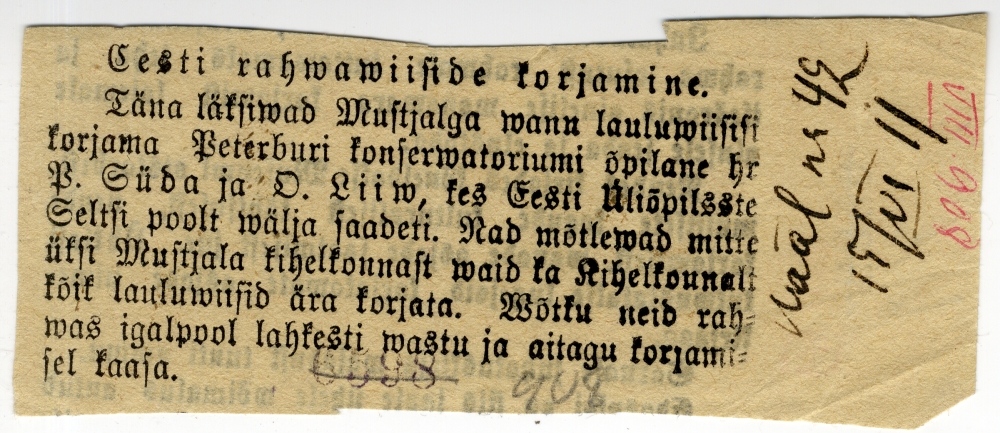 Eesti rahwawiiside korjamine.
Täna läksiwad Mustjalga wanu lauluwiisisi
korjama Peterburi konserwatoriumi õpilane hr
P. Süda ja O. Liiw, kes Eesti Üliõpilsste
Seltsi poolt wälja saadeti. Nad mõtlewad mitte
üksi Mustjala kihelkonnast waid ka Kihelkonnalt
kõik lauluwiisid ära korjata. Wõtku neid rah-
was igalpool lahkesti wastu ja aitagu korjami-
sel kaasa.
6598
908
nääl nr 42
15/VI 11
VIII 908